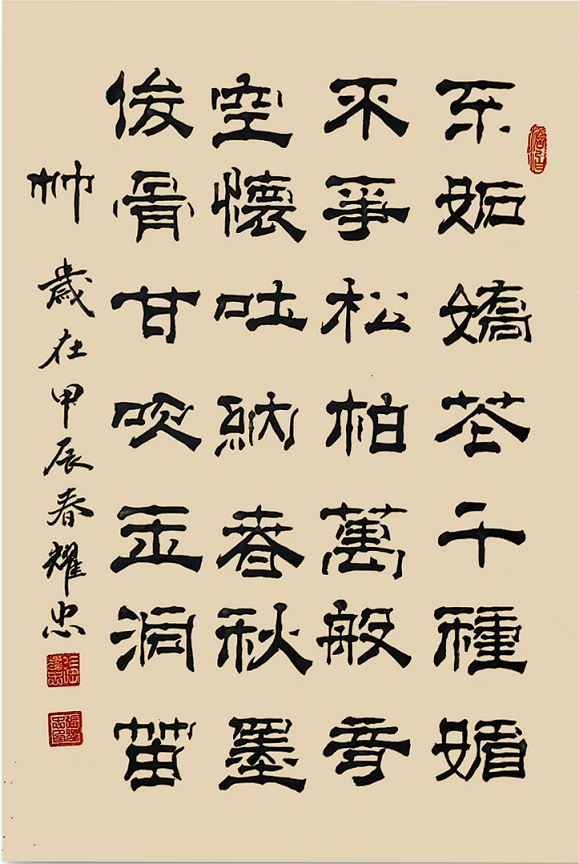 不妬嬌花千種媚
不爭松柏萬般奇
空懷吐納春秋墨
俊骨甘吹玉洞笛
竹 歲在甲辰春耀忠